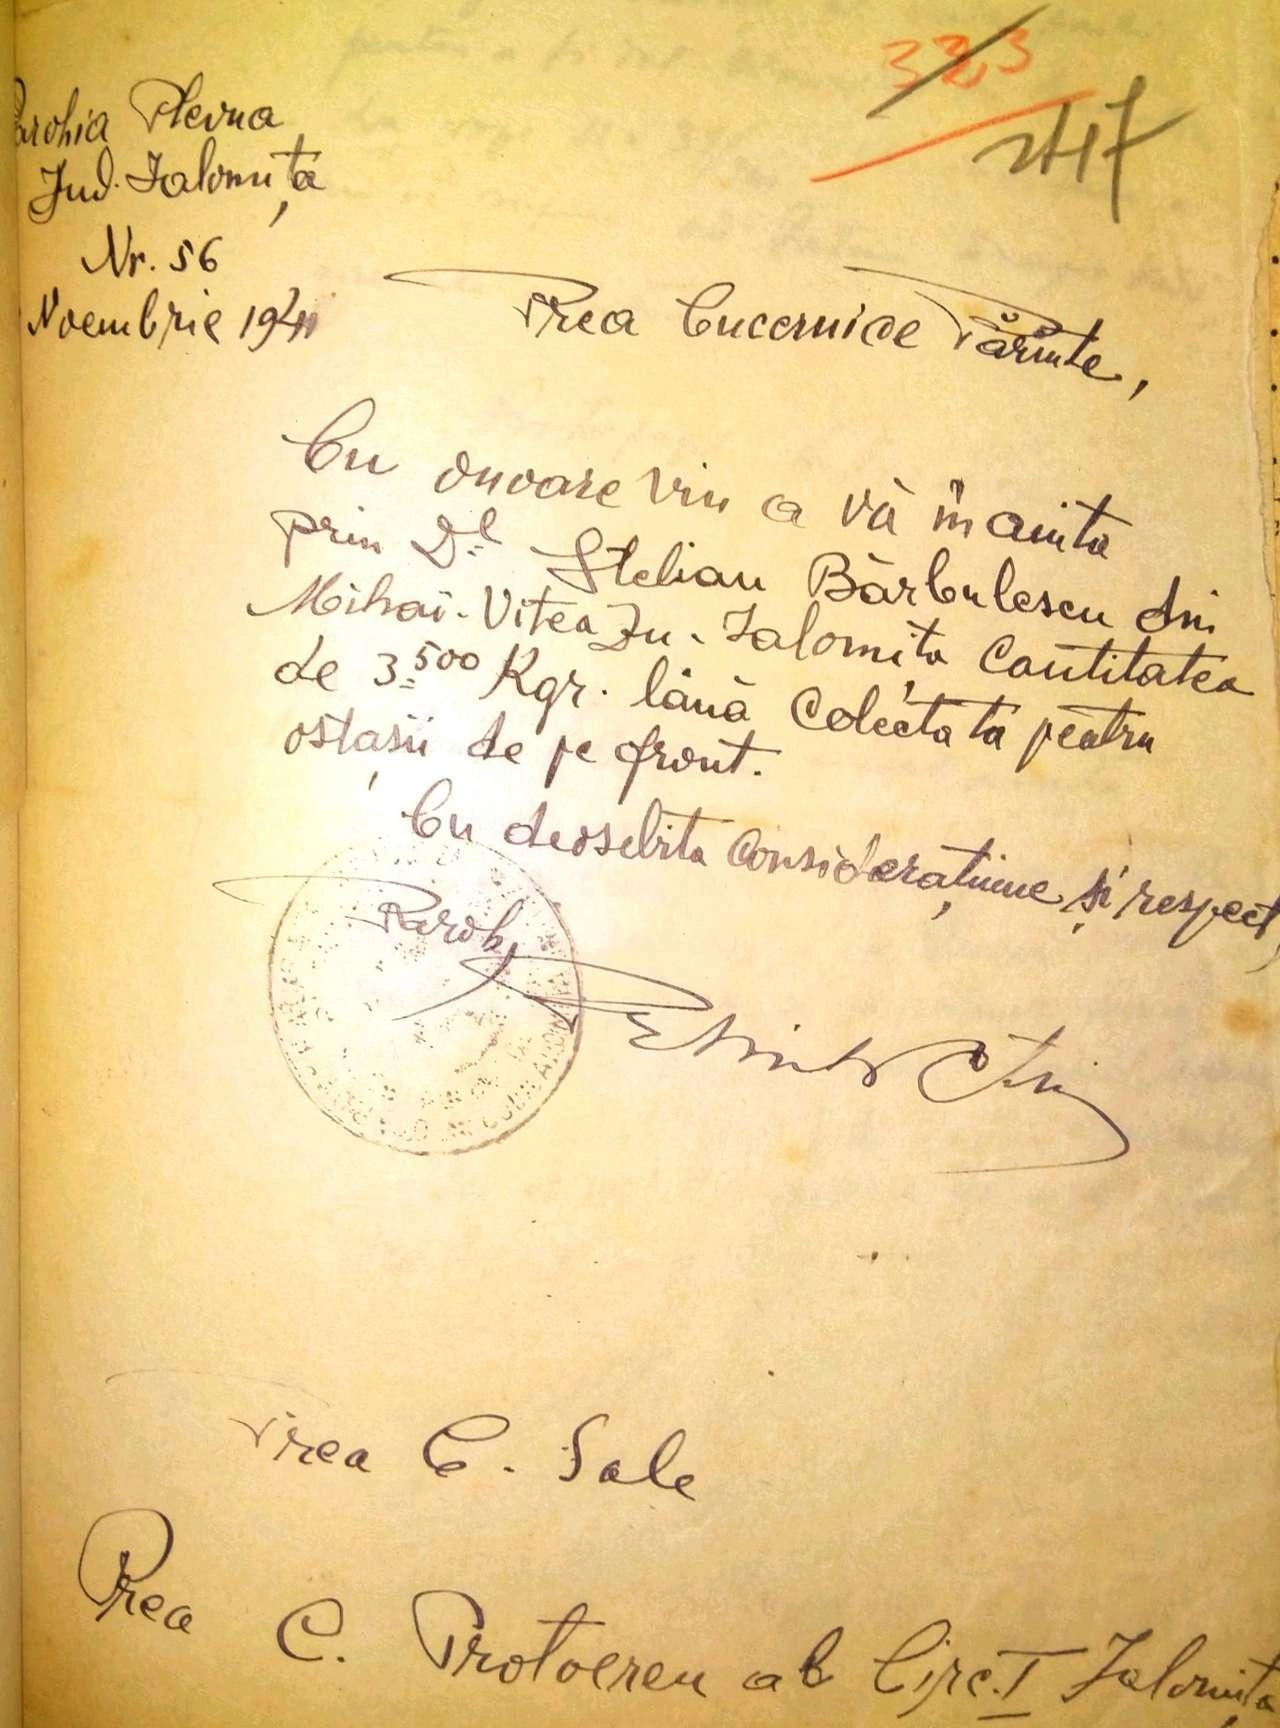 323
247
Parohia Plevna
Jud. Ialomița
Nr. 56
Noembrie 1941
Prea Cucernice Părinte,
Cu onoare vin a vă înainta
prin Dl Stelian Bărbulescu din
Mihai-Viteazu-Ialomița cantitatea
de 3500 Kgr. lână colectată pentru
ostașii de pe front.
Cu deosebita considerațiune și respect,
Paroh,
Prea C. Sale
Prea C. Protoereu al Circ. I Ialomița